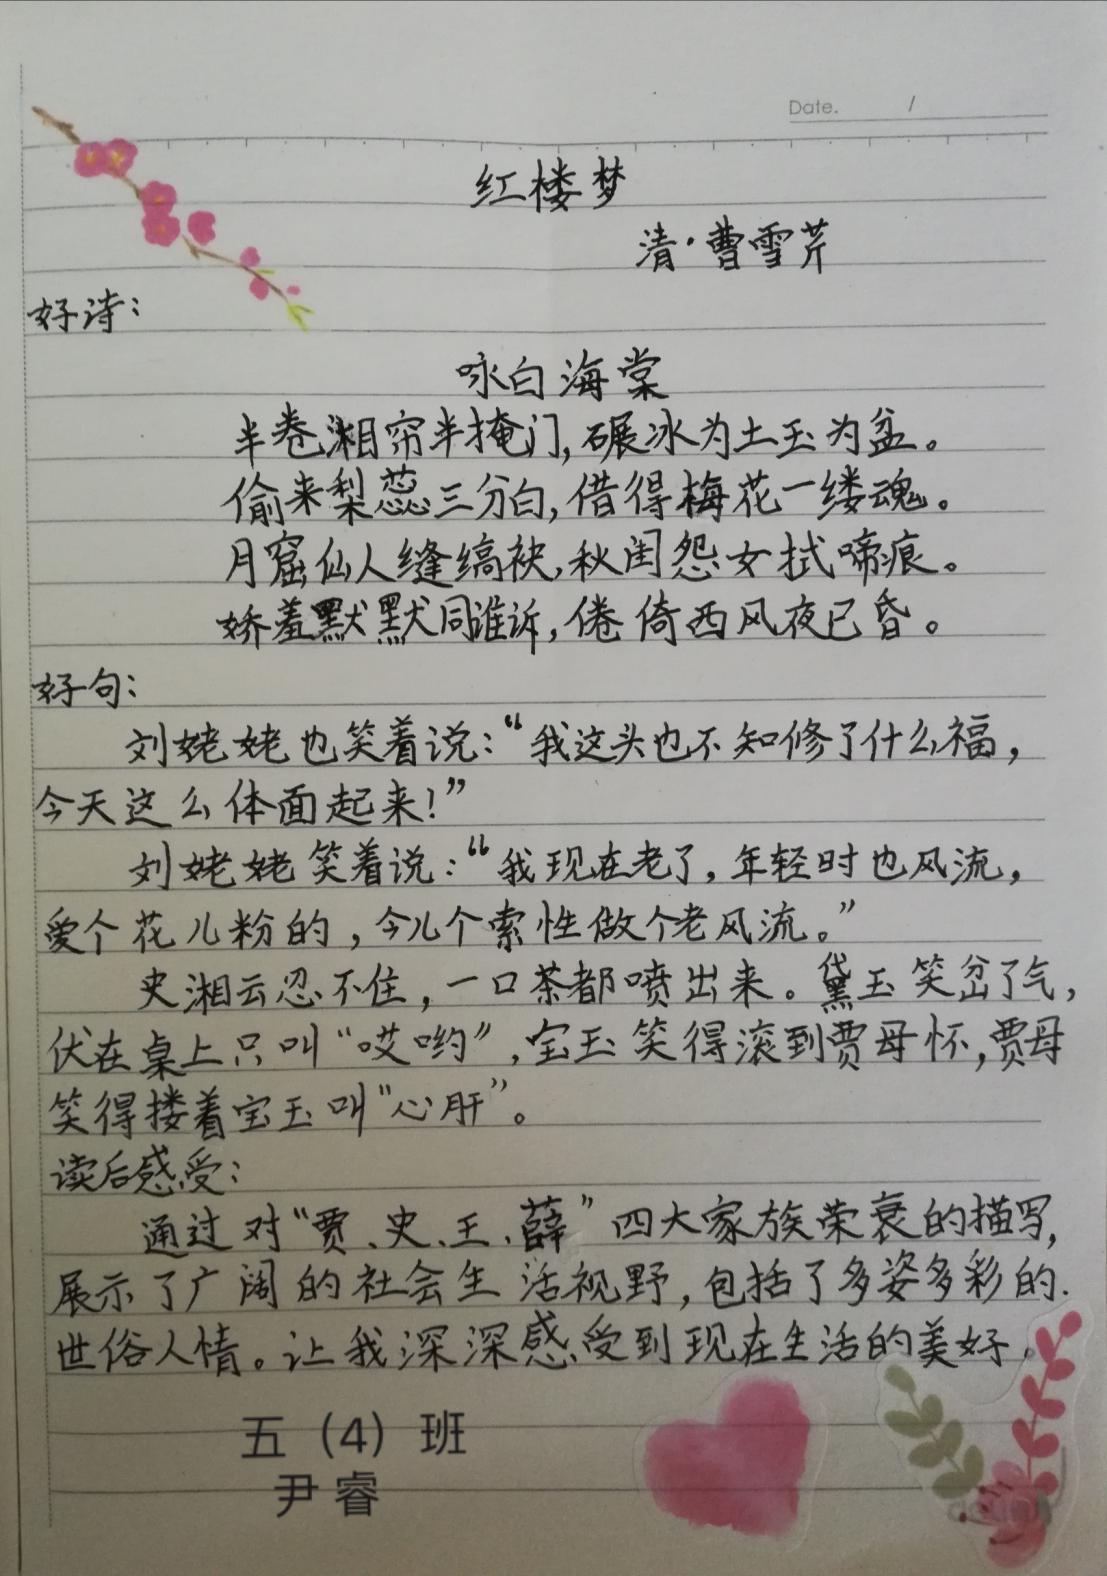 Date. /
红楼梦
清·曹雪芹
好诗：
咏白海棠
半卷湘帘半掩门，碾冰为土玉为盆。
偷来梨蕊三分白，借得梅花一缕魂。
月窟仙人缝缟袂，秋闺怨女拭啼痕。
娇羞默默同谁诉，倦倚西风夜已昏。
好句：
刘姥姥也笑着说：“我这头也不知修了什么福，
今天这么体面起来！”
刘姥姥笑着说：“我现在老了，年轻时也风流，
爱个花儿粉的，今儿个索性做个老风流。”
史湘云忍不住，一口茶都喷出来。黛玉笑岔了气，
伏在桌上只叫“哎哟”，宝玉笑得滚到贾母怀，贾母
笑得搂着宝玉叫“心肝”。
读后感受：
通过对“贾、史、王、薛”四大家族荣衰的描写，
展示了广阔的社会生活视野，包括了多姿多彩的.
世俗人情。让我深深感受到现在生活的美好。
五（4）班
尹睿